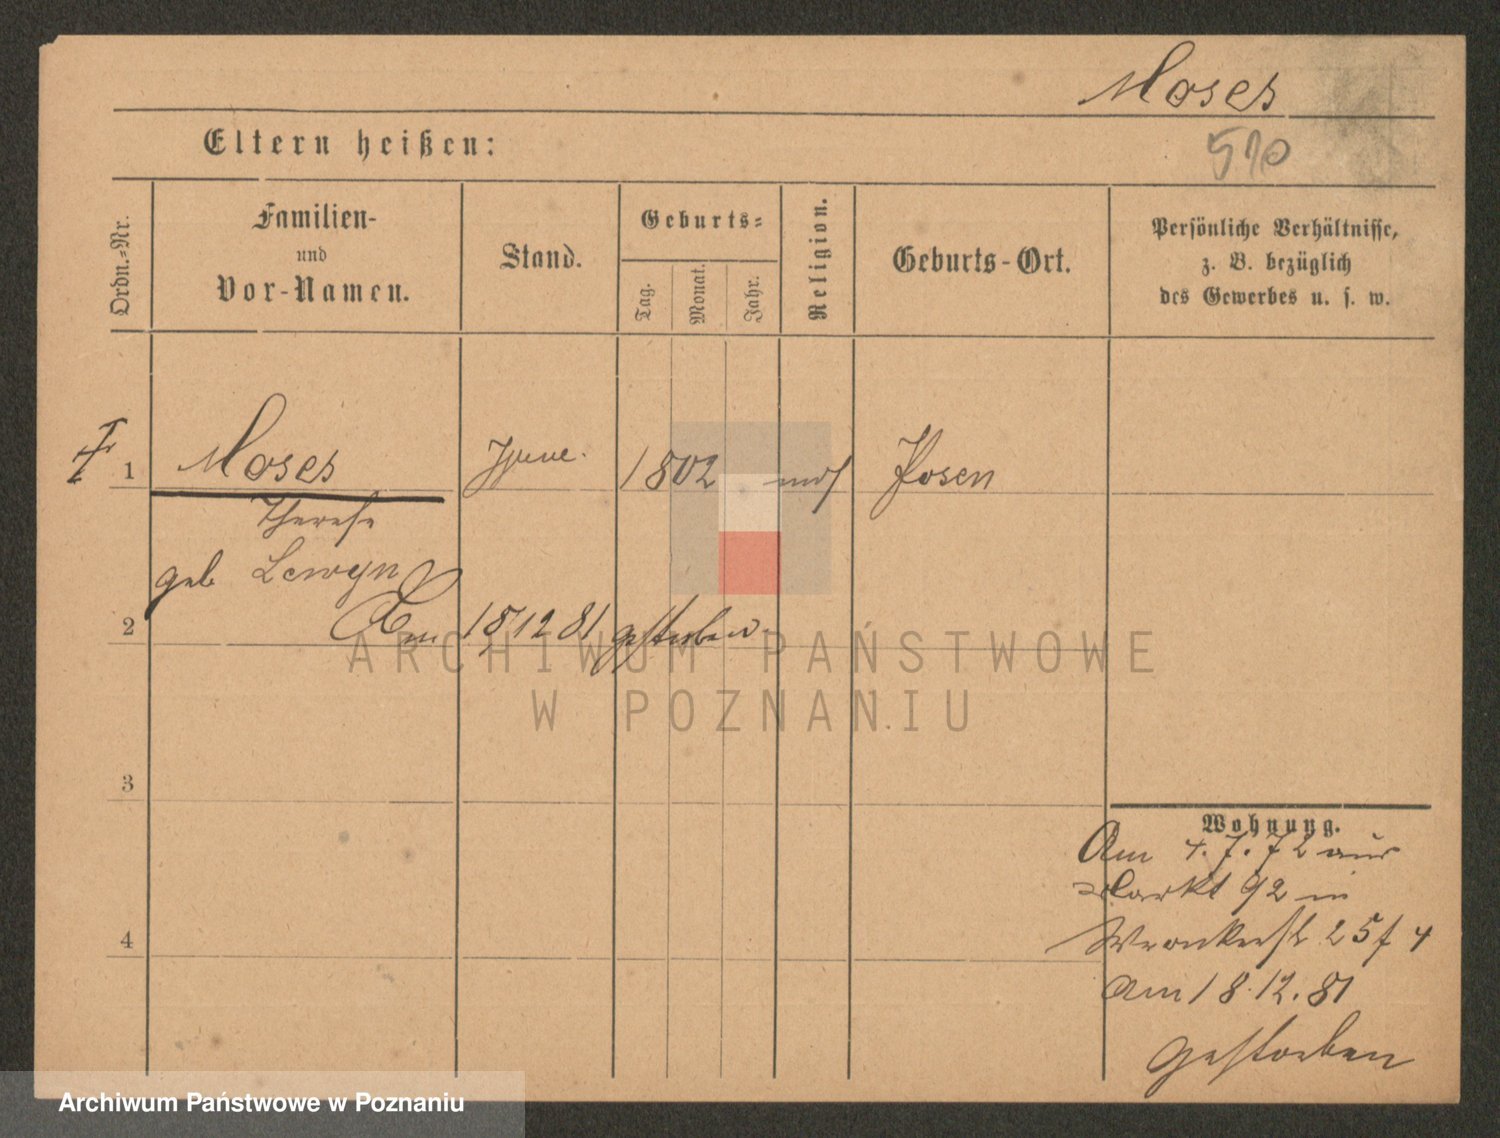 Moses
510
Eltern heißen:
Ordn.-Nr.
Familien-
und
Vor-Namen.
Stand.
Geburts-
Tag.
Monat.
Jahr.
Religion.
Geburts-Ort.
Persönliche Verhältnisse,
z. B. bezüglich
des Gewerbes u. s. w.
1 Moses 1802 Posen
Therese
geb Lewyn
2 Am 12 81 gestorben
ARCHIWUM PAŃSTWOWE
W POZNANIU
3
Wohnung.
Am 4.7.72 aus
Markt 92 in
4 Wronkerst 25 4
Am 18.12.81
gestorben
Archiwum Państwowe w Poznaniu